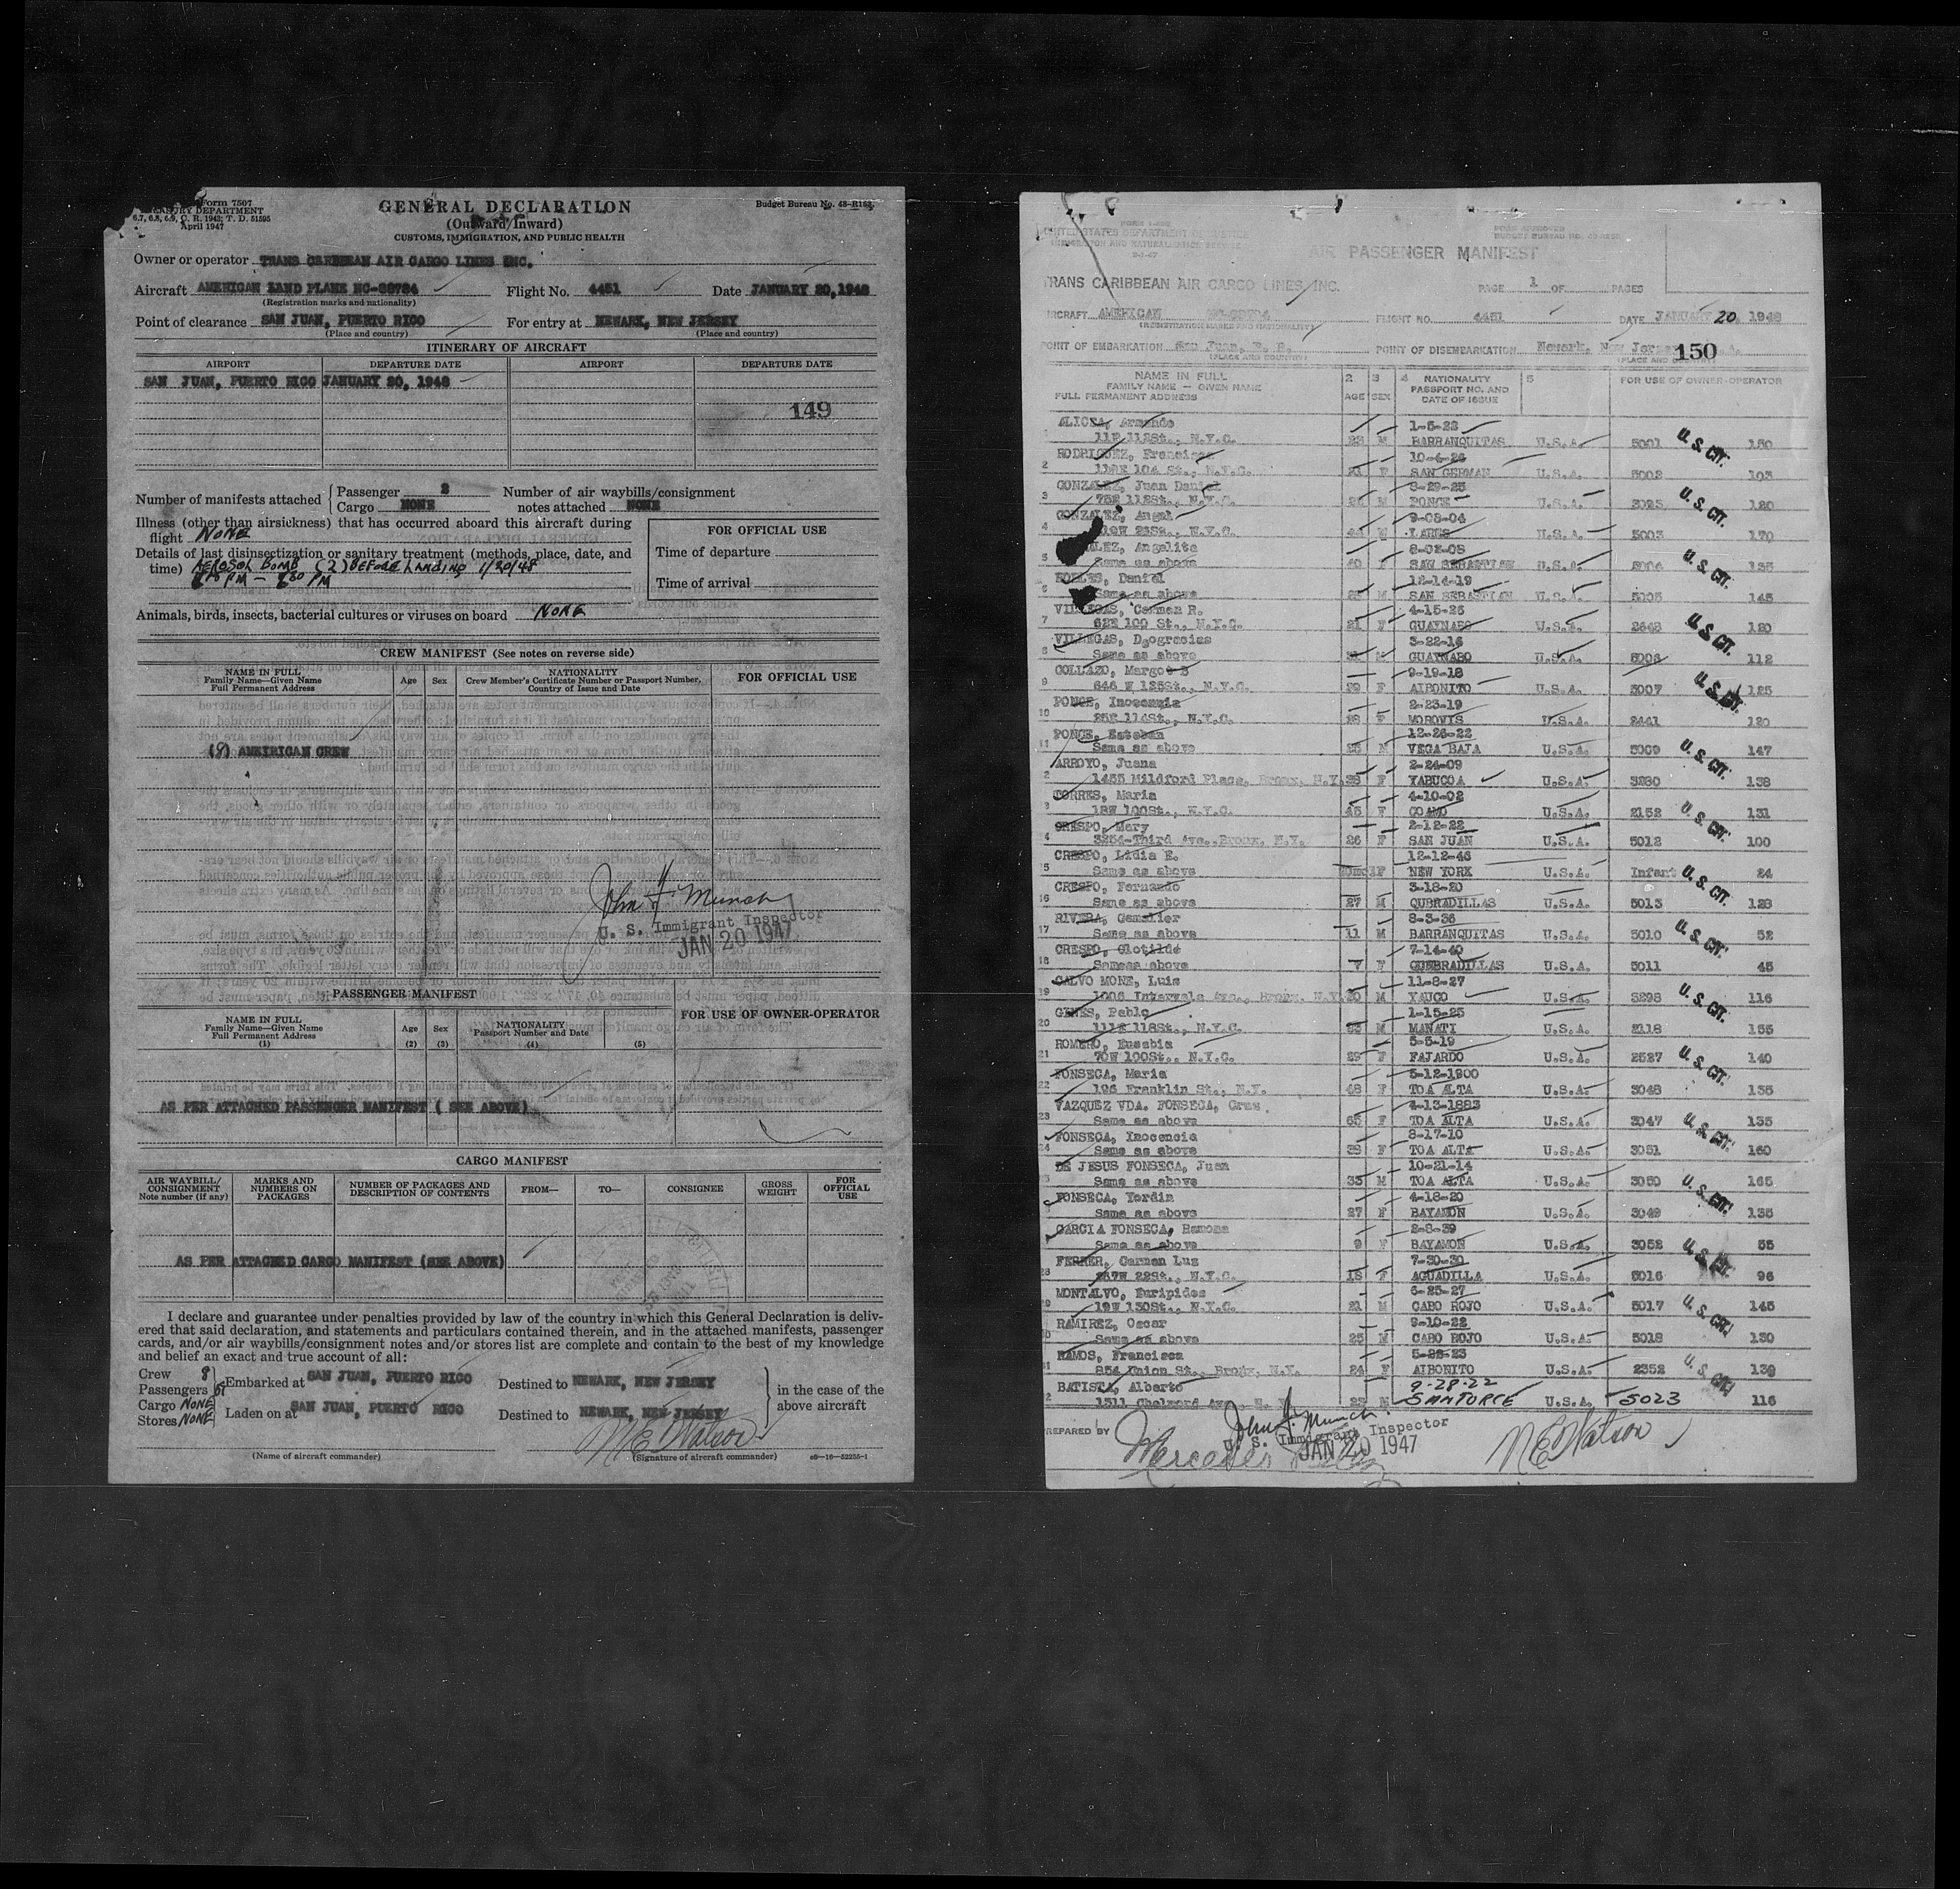 Form 7507
TREASURY DEPARTMENT
6.7, 6.8, 6.9, C. R. 1943; T. D. 51595
April 1947
GENERAL DECLARATION
(Outward/Inward)
CUSTOMS, IMMIGRATION, AND PUBLIC HEALTH
Budget Bureau No. 48-R163.
Owner or operator TRANS CARIBBEAN AIR CARGO LINES INC.
Aircraft AMERICAN LAND PLANE NC-88784 Flight No. 4451 Date JANUARY 20, 1948
(Registration marks and nationality)
Point of clearance SAN JUAN, PUERTO RICO For entry at NEWARK, NEW JERSEY
(Place and country) (Place and country)
ITINERARY OF AIRCRAFT
AIRPORT DEPARTURE DATE AIRPORT DEPARTURE DATE
SAN JUAN, PUERTO RICO JANUARY 20, 1948
149
Number of manifests attached Passenger 2 Cargo NONE Number of air waybills/consignment notes attached NONE
Illness (other than airsickness) that has occurred aboard this aircraft during
flight NONE
Details of last disinsectization or sanitary treatment (methods, place, date, and
time) AEROSOL BOMB (2) BEFORE LANDING 1/20/48
FOR OFFICIAL USE
Time of departure
Time of arrival
Animals, birds, insects, bacterial cultures or viruses on board NONE
CREW MANIFEST (See notes on reverse side)
NAME IN FULL
Family Name—Given Name
Full Permanent Address
Age Sex
NATIONALITY
Crew Member's Certificate Number or Passport Number,
Country of Issue and Date
FOR OFFICIAL USE
(8) AMEIRICAN CREW
John F. Munch
U. S. Immigrant Inspector
JAN 20 1947
PASSENGER MANIFEST
NAME IN FULL
Family Name—Given Name
Full Permanent Address
(1)
Age
(2)
Sex
(3)
NATIONALITY
Passport Number and Date
(4) (5)
FOR USE OF OWNER-OPERATOR
AS PER ATTACHED PASSENGER MANIFEST ( SEE ABOVE)
CARGO MANIFEST
AIR WAYBILL/
CONSIGNMENT
Note number (if any)
MARKS AND
NUMBERS ON
PACKAGES
NUMBER OF PACKAGES AND
DESCRIPTION OF CONTENTS
FROM— TO— CONSIGNEE
GROSS
WEIGHT
FOR
OFFICIAL
USE
AS PER ATTACHED CARGO MANIFEST (SEE ABOVE)
I declare and guarantee under penalties provided by law of the country in which this General Declaration is deliv-
ered that said declaration, and statements and particulars contained therein, and in the attached manifests, passenger
cards, and/or air waybills/consignment notes and/or stores list are complete and contain to the best of my knowledge
and belief an exact and true account of all:
Crew 8
Passengers
Cargo NONE
Stores NONE
Embarked at SAN JUAN, PUERTO RICO Destined to NEWARK, NEW JERSEY
Laden on at SAN JUAN, PUERTO RICO Destined to NEWARK, NEW JERSEY
in the case of the
above aircraft
M E Watson
(Name of aircraft commander) (Signature of aircraft commander) c6—16—52255-1
UNITED STATES DEPARTMENT
IMMIGRATION AND NATURALIZATION SERVICE
FORM APPROVED
AIR PASSENGER MANIFEST
TRANS CARIBBEAN AIR CARGO LINES, INC. PAGE 1 OF PAGES
AIRCRAFT AMERICAN FLIGHT NO. 4451 DATE JANUARY 20, 1948
(REGISTRATION MARKS AND NATIONALITY)
POINT OF EMBARKATION San Juan, P. R. POINT OF DISEMBARKATION Newark, New Jersey
(PLACE AND COUNTRY)
150
NAME IN FULL
FAMILY NAME — GIVEN NAME
FULL PERMANENT ADDRESS
2 AGE 3 SEX
4 NATIONALITY
PASSPORT NO. AND
DATE OF ISSUE
5
FOR USE OF OWNER-OPERATOR
ALICEA, Armando 1-5-22
11E 112St., N.Y.C. M BARRANQUITAS U.S.A. 5001 U.S. CIT. 150
RODRIGUEZ, Francisca 10-4-26
2 104 St., N.Y.C. F SAN GERMAN U.S.A. 5002 103
GONZALEZ, Juan Daniel
3 75E 112St., N.Y.C. M PONCE U.S.A. U.S. CIT. 120
GONZALEZ, Angel 9-08-04
4 M LARES U.S.A. 5003 170
Angelita
5 Same as above 40 F SAN SEBASTIAN U.S.A. U.S. CIT. 135
ROBLES, Daniel 12-14-19
6 Same as above M SAN SEBASTIAN U.S.A. 5005 145
VILLEGAS, Carmen R. 4-15-26
7 62E 109 St., N.Y.C. 21 F GUAYNABO U.S.A. 2648 U.S. CIT. 120
VILLEGAS, Deogracias 3-22-16
8 Same as above M GUAYNABO U.S.A. 5006 112
COLLAZO, Margot B 9-19-18
9 646 W 125St., N.Y.C. 29 F AIBONITO U.S.A. 5007 U.S. CIT. 125
PONCE, Inocencia 2-23-19
10 25E 114St., N.Y.C. 28 F MOROVIS U.S.A. 2441 120
PONCE, Esteban 12-26-22
11 Same as above 25 M VEGA BAJA U.S.A. 5009 U.S. CIT. 147
ARROYO, Juana 2-24-09
2 1455 Mildford Place, Bronx, N.Y. 38 F YABUCOA U.S.A. 3280 138
TORRES, Maria 4-10-02
3 18W 100St., N.Y.C. 45 F COAMO U.S.A. 2152 U.S. CIT. 131
CRESPO, Mary 2-12-22
4 3254-Third Ave., Bronx, N.Y. 26 F SAN JUAN U.S.A. 5012 100
CRESPO, Lidia E. 12-12-46
5 Same as above F NEW YORK U.S.A. Infant U.S. CIT. 24
CRESPO, Fernando 3-18-20
16 Same as above 27 M QUBRADILLAS U.S.A. 5013 128
RIVERA, Gamalier 8-3-36
17 Same as above 11 M BARRANQUITAS U.S.A. 5010 U.S. CIT. 52
CRESPO, Clotilde 7-14-40
18 Sameas above 7 F QUEBRADILLAS U.S.A. 5011 45
CALVO MONE, Luis 11-8-27
19 1006 Intervale Ave., Bronx, N.Y. 20 M YAUCO U.S.A. 3298 U.S. CIT. 116
GINES, Pablo 1-15-25
20 111E 118St., N.Y.C. M MANATI U.S.A. 2118 155
ROMERO, Eusebia 5-5-19
21 70W 100St., N.Y.C. 29 F FAJARDO U.S.A. 2527 U.S. CIT. 140
FONSECA, Maria 5-12-1900
22 196 Franklin St., N.Y. 48 F TOA ALTA U.S.A. 3048 135
VAZQUEZ VDA. FONSECA, Cruz 4-13-1883
23 Same as above 65 F TOA ALTA U.S.A. 3047 U.S. CIT. 135
FONSECA, Inocencia 8-17-10
24 Same as above 38 F TOA ALTA U.S.A. 3051 160
DE JESUS FONSECA, Juan 10-21-14
Same as above 33 M TOA ALTA U.S.A. 3050 U.S. CIT. 165
FONSECA, Yordin 4-18-20
Same as above 27 F BAYAMON U.S.A. 3049 135
GARCIA FONSECA, Ramona 2-8-39
Same as above 9 F BAYAMON U.S.A. 3052 U.S. CIT. 55
FERRER, Carmen Luz 7-30-30
28 267W 22St., N.Y.C. 18 F AGUADILLA U.S.A. 5016 96
MONTALVO, Euripides 6-25-27
19W 130St., N.Y.C. 21 M CABO ROJO U.S.A. 5017 U.S. CIT. 145
RAMIREZ, Oscar 9-10-22
Same as above 25 M CABO ROJO U.S.A. 5018 130
RAMOS, Francisca 5-28-23
854 Union St., Bronx, N.Y. 24 F AIBONITO U.S.A. 2352 U.S. CIT. 139
BATISTA, Alberto 9-28-22
2 1511 M SANTURCE U.S.A. 5023 116
PREPARED BY Mercedes
John F. Munch
U. S. Immigrant Inspector
JAN 20 1947
M E Watson